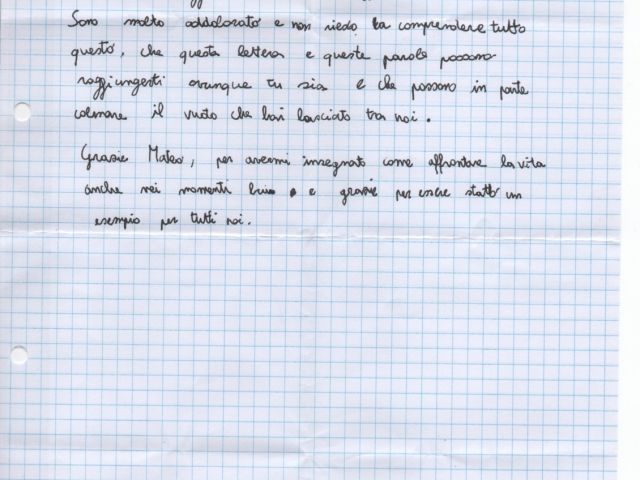 Sono molto addolorato e non riesco a comprendere tutto
questo, che questa lettera e queste parole possano
raggiungerti ovunque tu sia e che possano in parte
colmare il vuoto che hai lasciato tra noi.
Grazie Mateo, per avermi insegnato come affrontare la vita
anche nei momenti e grazie per essere stato un
esempio per tutti noi.